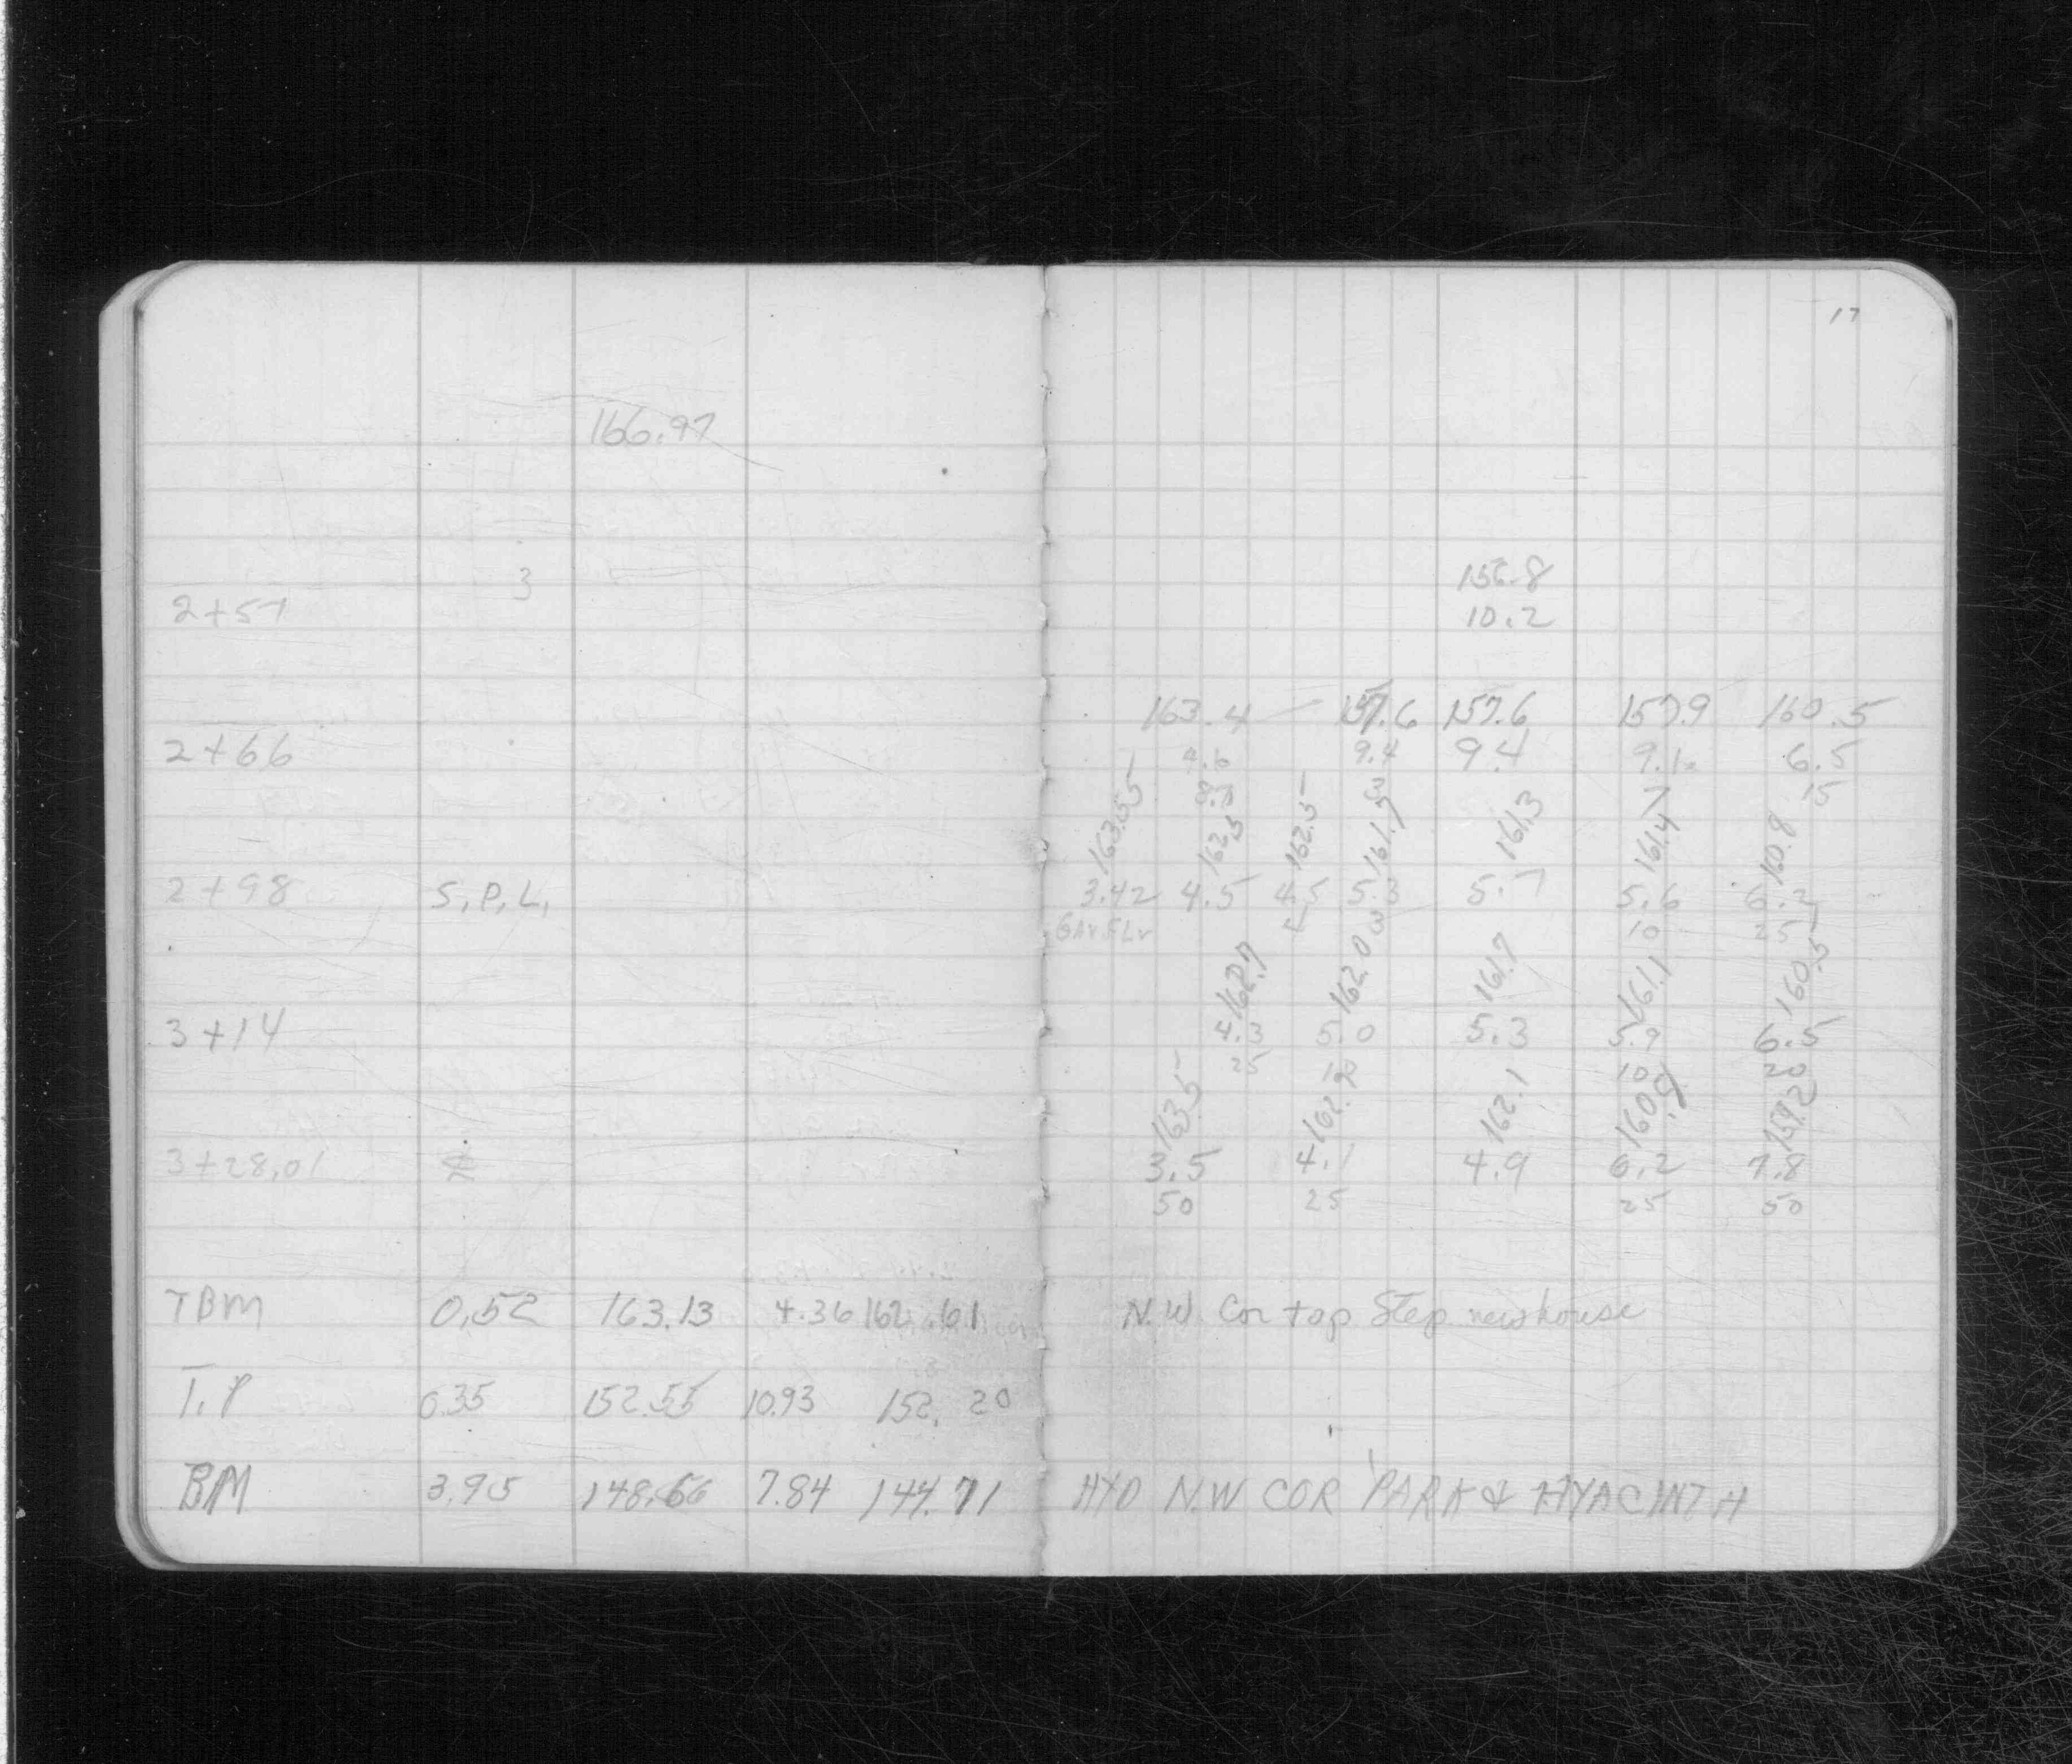 17
166.97
3
156.8
2+57
10.2
163.4 157.6 157.6 157.9 160.5
2+66 4.6 9.4 9.4 9.1 6.5
3 15
163.55 162.5 162.5 161.7 161.3 161.4 160.8
2+98 S.P.L. 3.42 4.5 4.5 5.3 5.7 5.6 6.2
Gar. Flr 4 3 10 25
162.7 162.0 161.7 161.1 160.5
3+14 4.3 5.0 5.3 5.9 6.5
25 10 10 20
163.5 162.9 162.1 160.8 159.2
3+28.01 3.5 4.1 4.9 6.2 7.8
50 25 25 50
TBM 0.52 163.13 4.36 162.61 N.W. Cor top Step new house
T.P 0.35 152.55 10.93 152.20
BM 3.95 148.66 7.84 144.71 HYD N.W COR PARK & HYACINTH